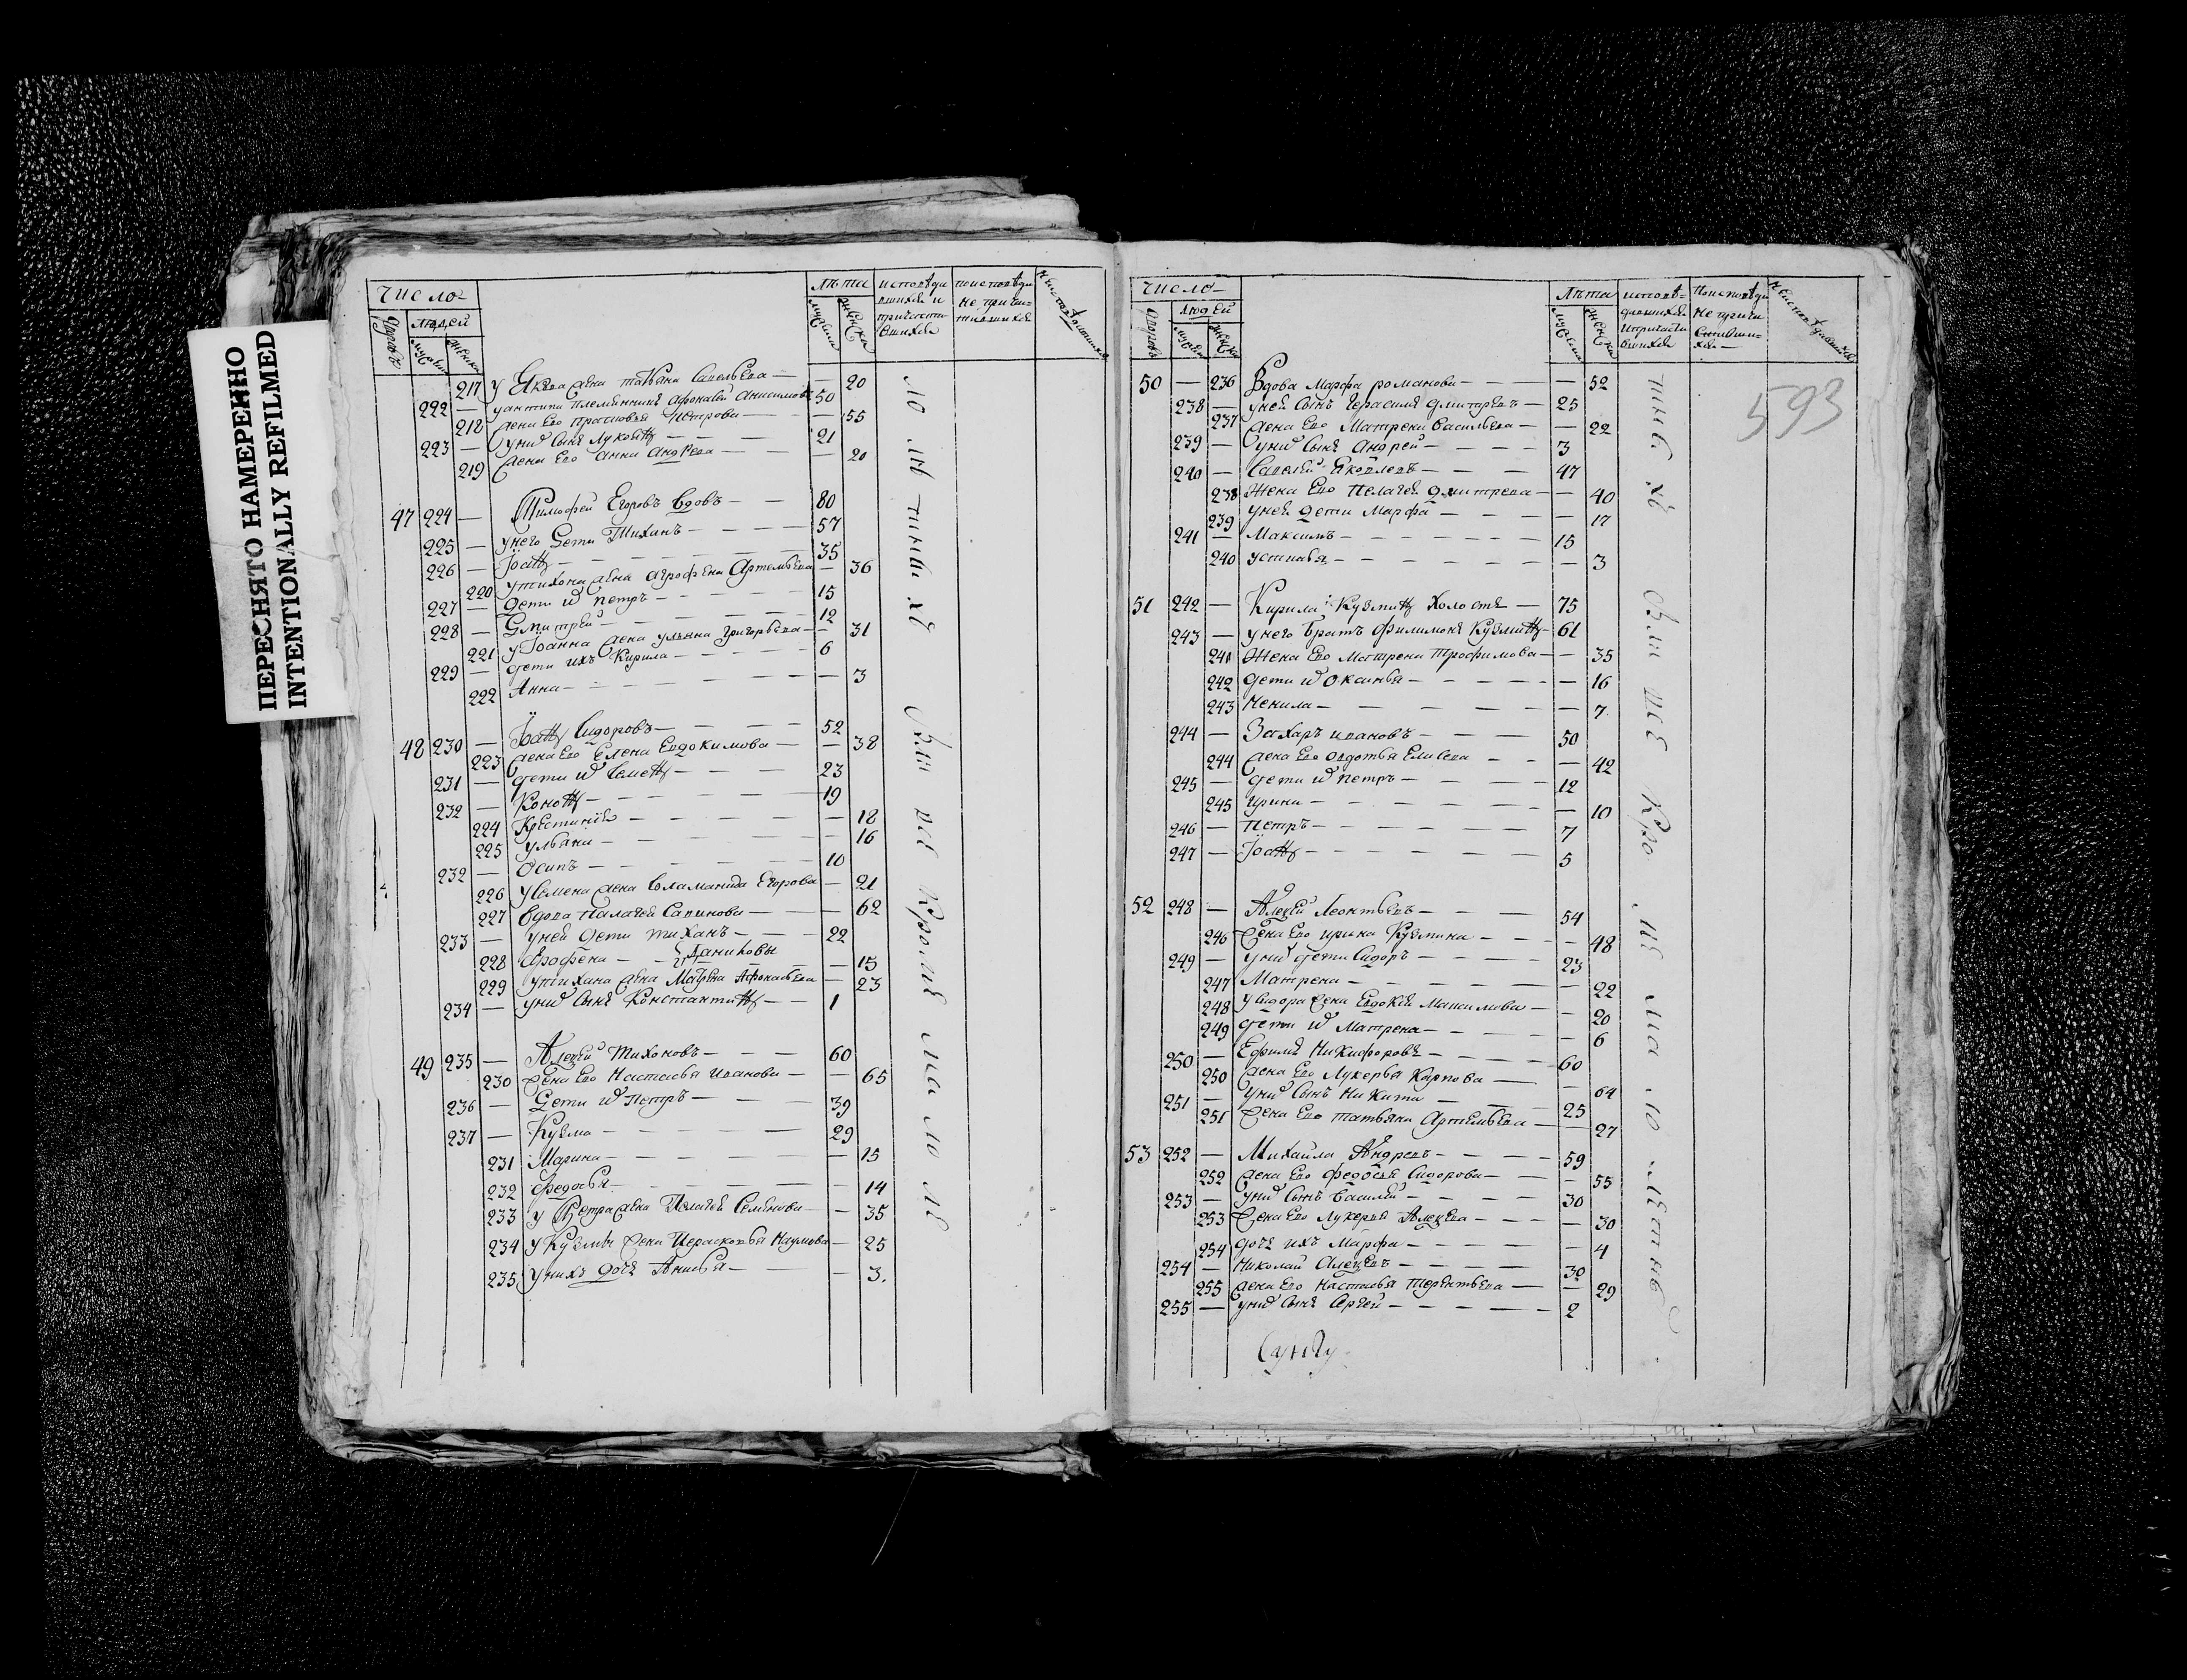 ПЕРЕСНЯТО НАМЕРЕННО
INTENTIONALLY REFILMED
Число
людей
лѣта
217 У Якова жена татьяна Савельева — — 20
222 — уантипа племянникъ Афонасей Анисимовъ 50
218 жена Ево прасковья Петрова — — 55
223 — унихъ сынъ Лукьянъ — — 21
219 жена Ево Анна Андреева — — 20
47 224 — Тимофей Егоровъ вдовъ — — 80
225 — унего дети Тиханъ — — 57
226 — Іоаннъ — — 35
220 утихона жена Агрофена Артемьева — 36
227 — дети ихъ петръ — — 15
228 — Дмитрей — — 12
221 уІоанна жена ульяна Григорьева — 31
229 — дети ихъ Кирила — — 6
222 Анна — — 3
48 230 — Іоаннъ Сидоровъ — — 52
223 жена Ево Елена Евдокимова — — 38
231 — дети ихъ Семенъ — — 23
232 — Кононъ — — 19
224 Крестинія — — 18
225 ульяна — — 16
232 — Осипъ — — 10
226 уСемена жена Соламанида Егорова — 21
227 вдова Палагея Савинова — — 62
233 — уней дети тиханъ — — 22
228 Агрофена — Даниловы — 15
229 утихана жена Матрена Афонасьева — 23
234 — унихъ сынъ Константинъ — — 1
49 235 — Алексей Тихоновъ — — 60
230 жена Ево Настасья Иванова — — 65
236 — Дети ихъ Петръ — — 39
237 — Кузма — — 29
231 Марина — — 15
232 федосья — — 14
233 у Петра жена Пелагея Семенова — 35
234 у Кузмы жена Перасковья Наумова — 25
235 унихъ дочь Анисья — — 3.
Число
людей
лѣта
593
50 — 236 Вдова Марфа романова — — 52
238 — уней сынъ Герасимъ дмитревъ — 25
237 жена Ево Матрена Васильева — — 22
239 — унихъ сынъ Андрей — — 3
240 — Савелей Яковлевъ — — 47
238 Жена Ево Пелагея дмитрева — — 40
239 уней дети Марфа — — 17
241 — Максимъ — — 15
240 устинья — — 3
51 242 — Кирила Кузминъ холостъ — 75
243 — унего братъ Филимонъ Кузминъ — 61
241 Жена Ево Матрена Трофимова — — 35
242 дети ихъ Оксинья — — 16
243 Ненила — — 7
244 — Захаръ ивановъ — — 50
244 жена Ево овдотья Елисева — — 42
245 — дети ихъ петръ — — 12
245 Ирина — — 10
246 — Петръ — — 7
247 — Іоаннъ — — 5
52 248 — Алексей Леонтьевъ — — 54
246 жена Ево ирина Кузмина — — 48
249 — унихъ дети Сидоръ — — 23
247 Матрена — — 22
248 уСидора жена Евдокія Максимова — 20
249 дети ихъ Матрена — — 6
250 — Ефимъ Никифоровъ — — 60
250 жена Ево Лукерья Карпова — — 64
251 — унихъ сынъ Никита — — 25
251 жена Ево татьяна Артемьева — — 27
53 252 — Михайла Андревъ — — 59
252 жена Ево федосья Сидорова — — 55
253 — унихъ сынъ Василей — — 30
253 жена Ево Лукерья Алексева — — 30
254 дочь ихъ Марфа — — 4
254 — Николай Алексевъ — — 30
255 жена Ево настасья Терентьева — — 29
255 — унихъ сынъ Сергей — — 2